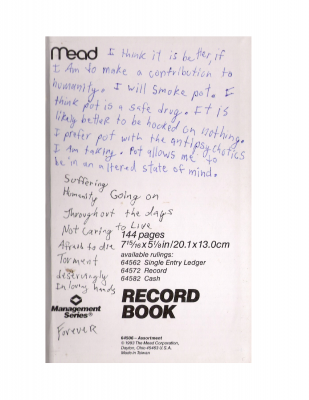 Mead
I think it is better, if
I Am to make a contribution to
humanity. I will smoke pot. I
think pot is a safe drug. It is
likely better to be hooked on nothing.
I prefer pot with the antipsychotics
I am taking. Pot allows me to
be in an altered state of mind.
Suffering
Humanity Going on
Throughout the days
Not Caring to Live
Afraid to die
Torment
deservingly
In loving hands
Forever
144 pages
7 15/16 x 5 1/8 in/20.1 x 13.0cm
available rulings:
64562 Single Entry Ledger
64572 Record
64582 Cash
Management
Series®
RECORD
BOOK
64506 – Assortment
© 1993 The Mead Corporation,
Dayton, Ohio 45463 U.S.A.
Made in Taiwan